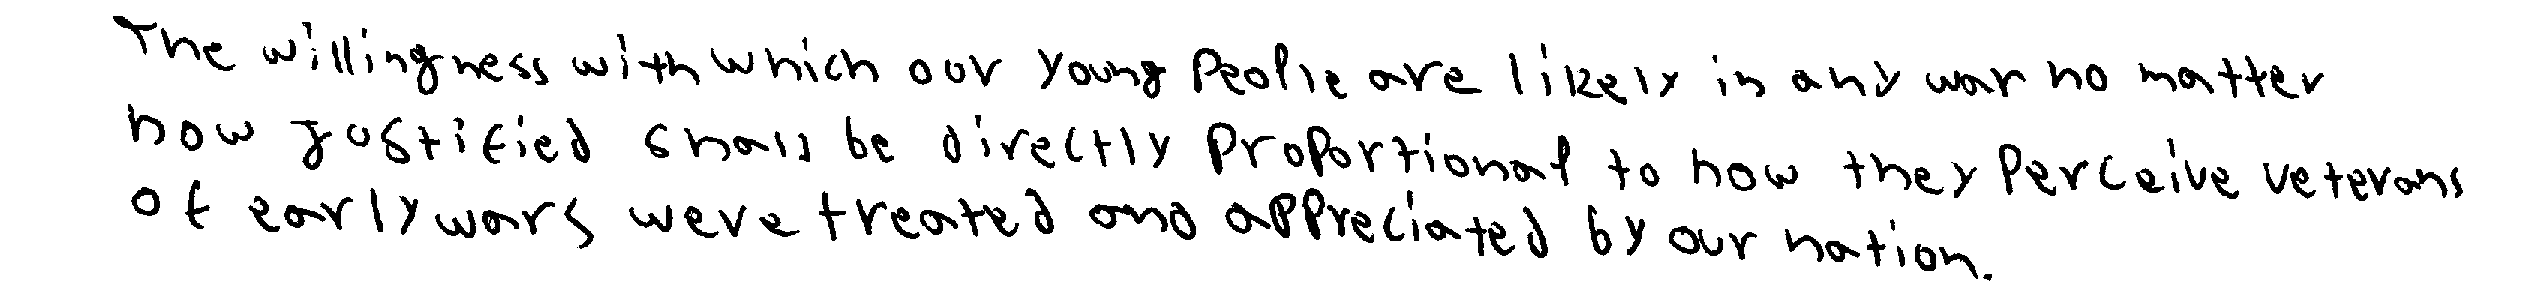 The willingness with which our young people are likely in any war no matter
how justified shall be directly proportional to how they perceive veterans
of early wars were treated and appreciated by our nation.